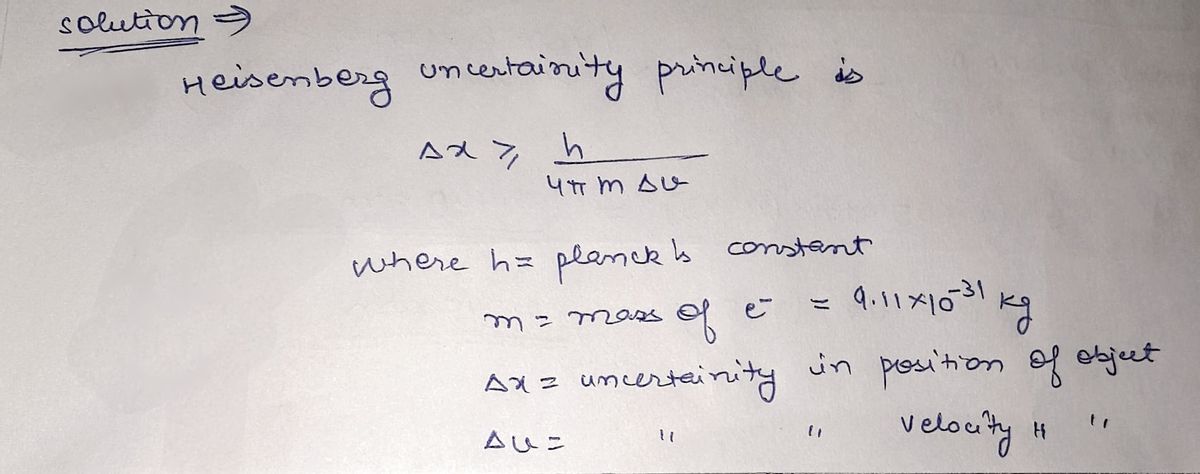 solution ⇒
Heisenberg uncertainity principle is
Δx ≥ h
4π m Δv
where h = planck's constant
m = mass of e⁻ = 9.11×10⁻³¹ kg
Δx = uncertainity in position of object
Δu = " " velocity " "